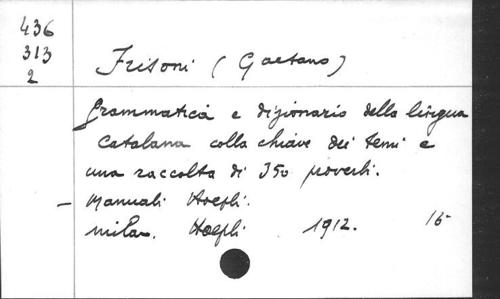 436
313
2
Frisoni (Gaetano)
Grammatica e dizionario della lingua
Catalana colla chiave dei temi e
una raccolta di 350 proverbi.
– Manuali Hoepli.
Milan. Hoepli 1912. 16